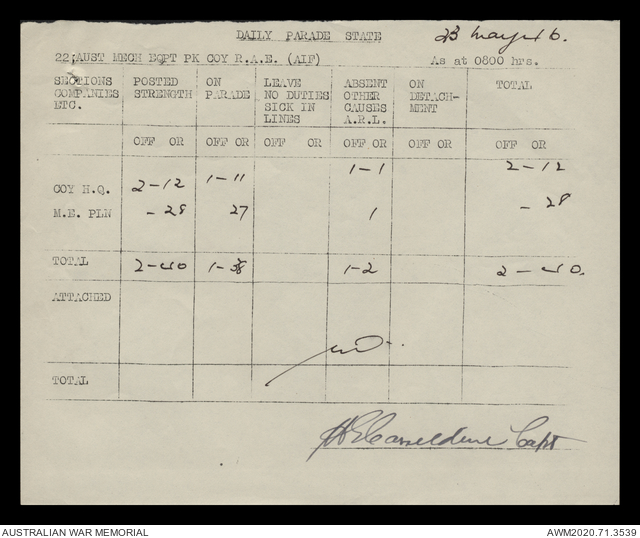 DAILY PARADE STATE 23 May 46.
22 AUST MECH EQPT PK COY R.A.E. (AIF) As at 0800 hrs.
SECTIONS COMPANIES ETC. POSTED STRENGTH ON PARADE LEAVE NO DUTIES SICK IN LINES ABSENT OTHER CAUSES A.R.L. ON DETACH-MENT TOTAL
OFF OR OFF OR OFF OR OFF OR OFF OR OFF OR
COY H.Q. 2-12 1-11 1-1 2-12
M.E. PLN - 28 27 1 - 28
TOTAL 2-40 1-38 1-2 2-40.
ATTACHED
TOTAL
Capt
AUSTRALIAN WAR MEMORIAL AWM2020.71.3539